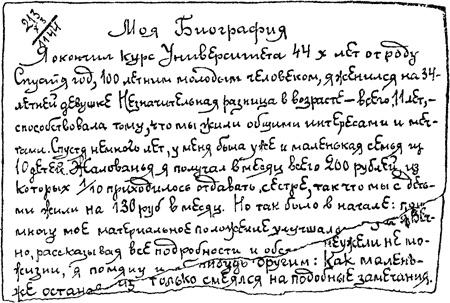 213
х 3
1144
Моя Биография
Я окончил курс Университета 44 х лет от роду
Спустя год, 100 летним молодым человеком, я женился на 34-
летней девушке Незначительная разница в возрасте – всего 11 лет, –
способствовала тому, что мы жили общими интересами и меч-
тами. Спустя немного лет, у меня была уже и маленькая семья из
10 детей. Жалованья я получал в месяц всего 200 рублей, из
которых 1/10 приходилось отдавать, сестре, так что мы с деть-
ми жили на 130 руб в месяц. Но так было в начале:
многу мое материальное положение улучшало
но, рассказывая все подробности и неужели не мо-
жизни, я помяну и нибудь другим: Как малень-
же только смеялся на подобные замечания.